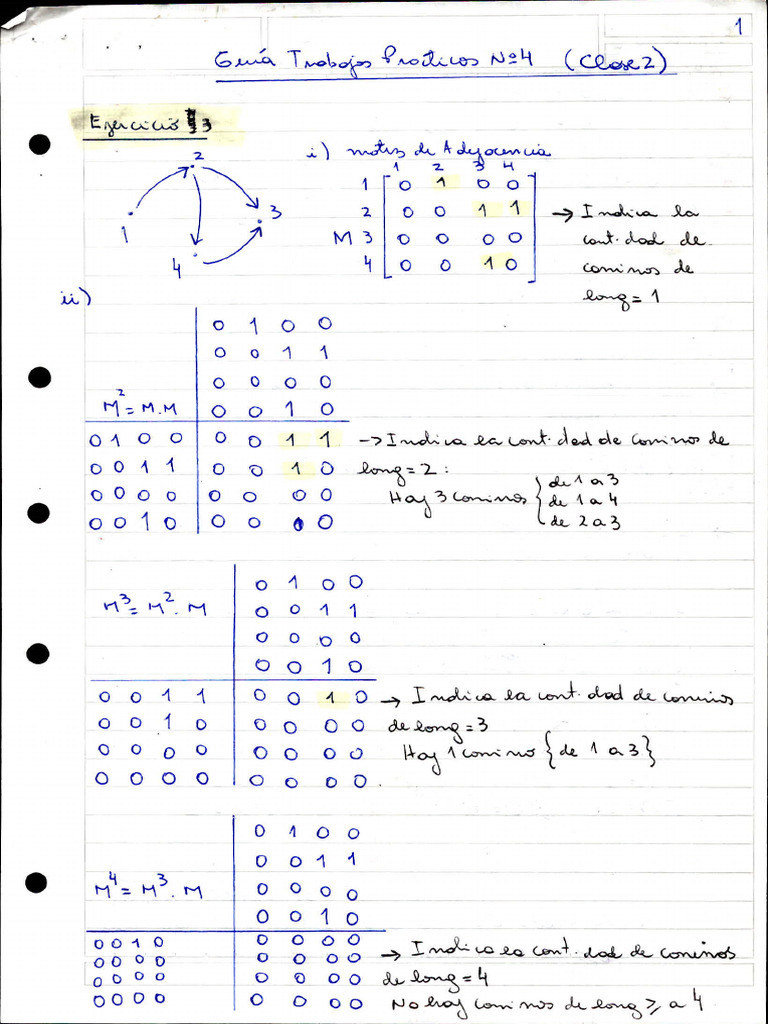 1
Guía Trabajos Prácticos Nº4 (Clase 2)
Ejercicio 3
1 2 3 4
i) matriz de Adyacencia
1 2 3 4
1 0 1 0 0
2 0 0 1 1 → Indica la
M 3 0 0 0 0 cantidad de
4 0 0 1 0 caminos de
long = 1
ii)
0 1 0 0
0 0 1 1
0 0 0 0
M² = M.M 0 0 1 0
0 1 0 0 0 0 1 1 → Indica la cantidad de caminos de
0 0 1 1 0 0 1 0 long = 2 :
0 0 0 0 0 0 0 0 Hay 3 caminos { de 1 a 3
de 1 a 4
0 0 1 0 0 0 0 0 de 2 a 3
0 1 0 0
M³ = M² . M 0 0 1 1
0 0 0 0
0 0 1 0
0 0 1 1 0 0 1 0 → Indica la cantidad de caminos
0 0 1 0 0 0 0 0 de long = 3
0 0 0 0 0 0 0 0 Hay 1 camino { de 1 a 3 }
0 0 0 0 0 0 0 0
0 1 0 0
0 0 1 1
M⁴ = M³ . M 0 0 0 0
0 0 1 0
0 0 1 0 0 0 0 0 → Indica la cantidad de caminos
0 0 0 0 0 0 0 0
0 0 0 0 0 0 0 0 de long = 4
0 0 0 0 0 0 0 0 No hay caminos de long ≥ a 4